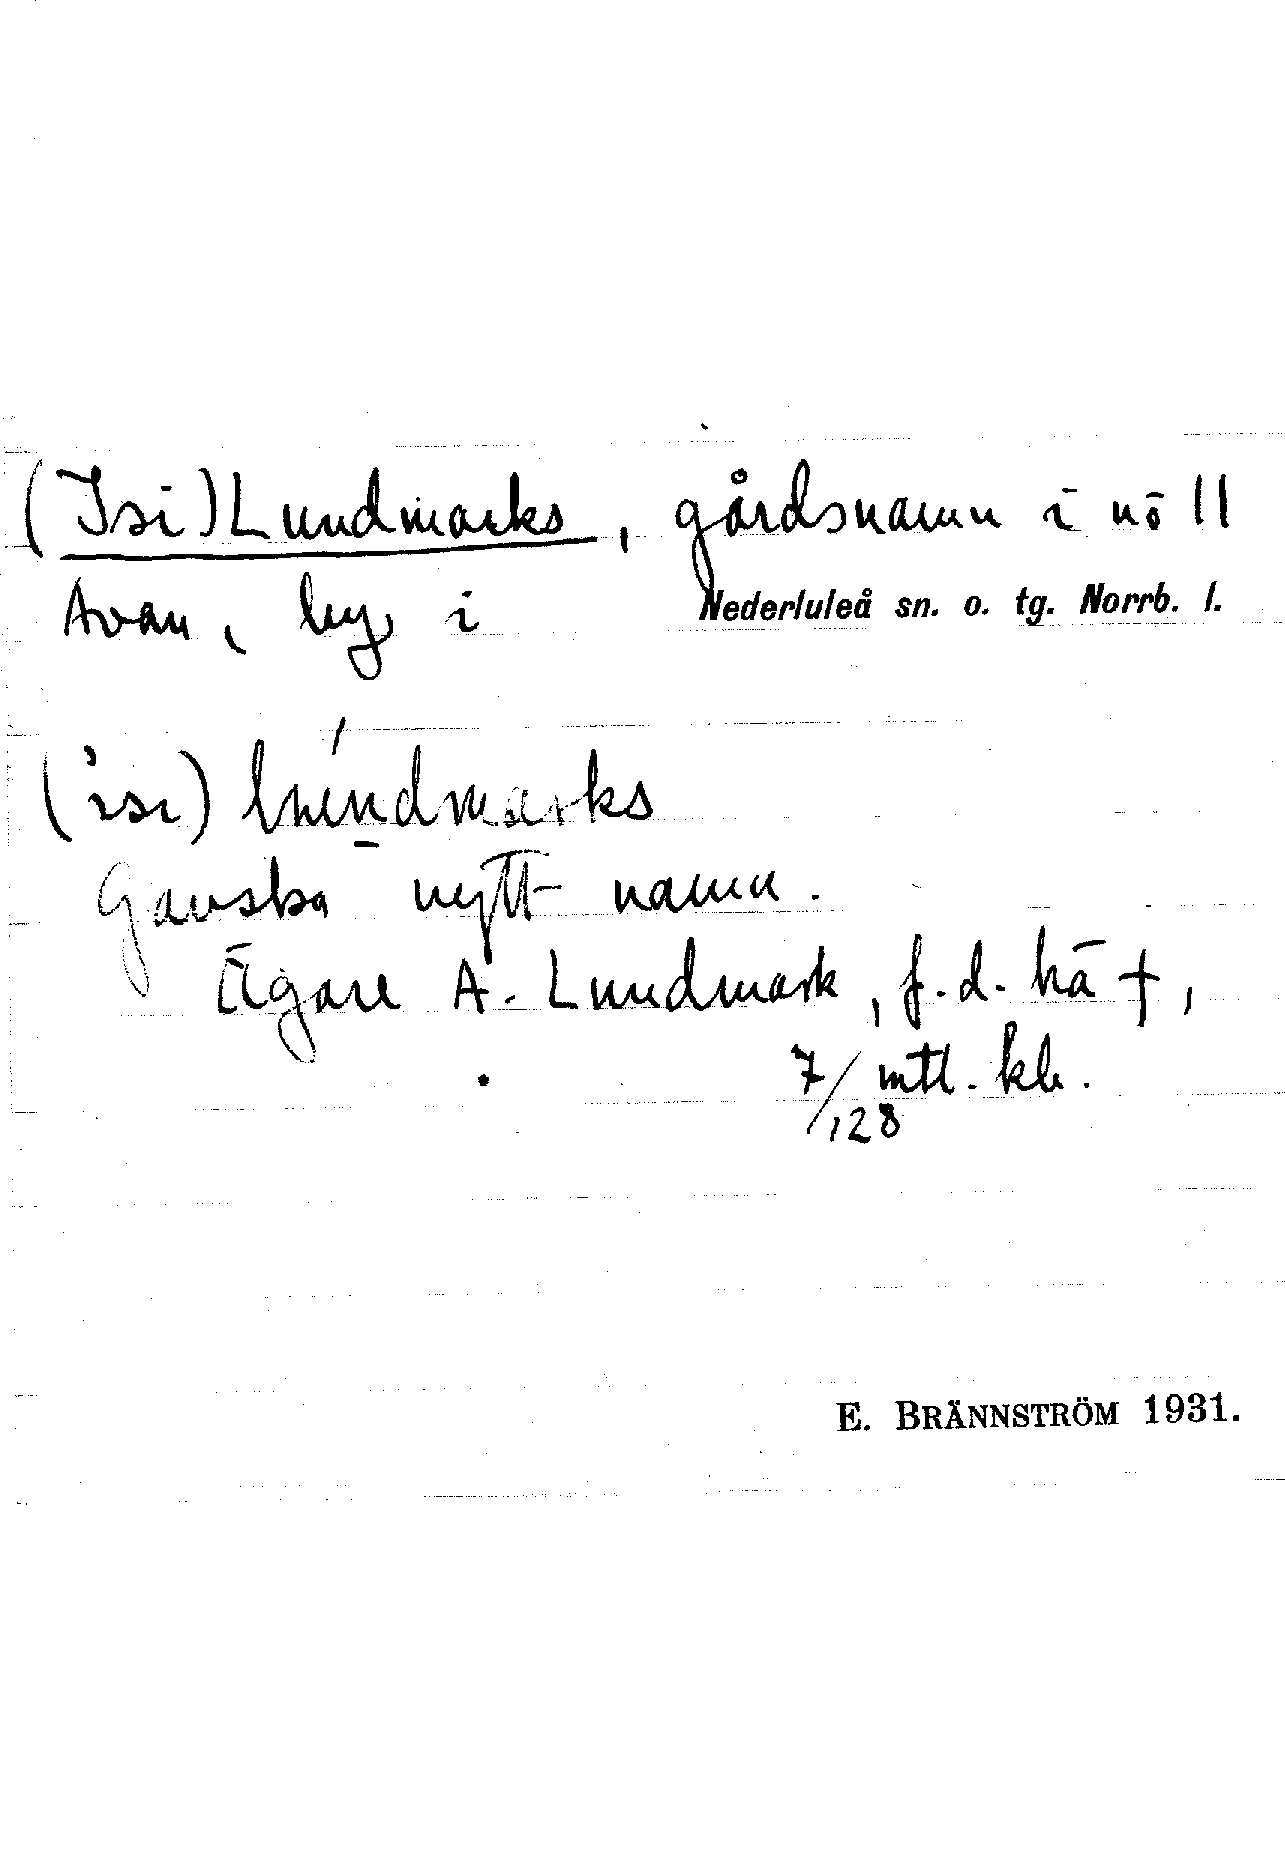 (Isi)Lundmarks, gårdsnamn i nö 11
Avan, by i Nederluleå sn. o. tg. Norrb. l.
( isi) lundmarks
Ganska nytt namn.
Ägare A. Lundmark, f.d. hä †,
7/128 mtl. kb.
E. BRÄNNSTRÖM 1931.